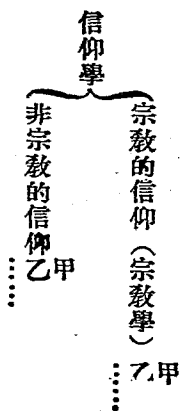 信仰學
宗敎的信仰(宗敎學)
甲
乙
……
非宗敎的信仰
甲
乙
……